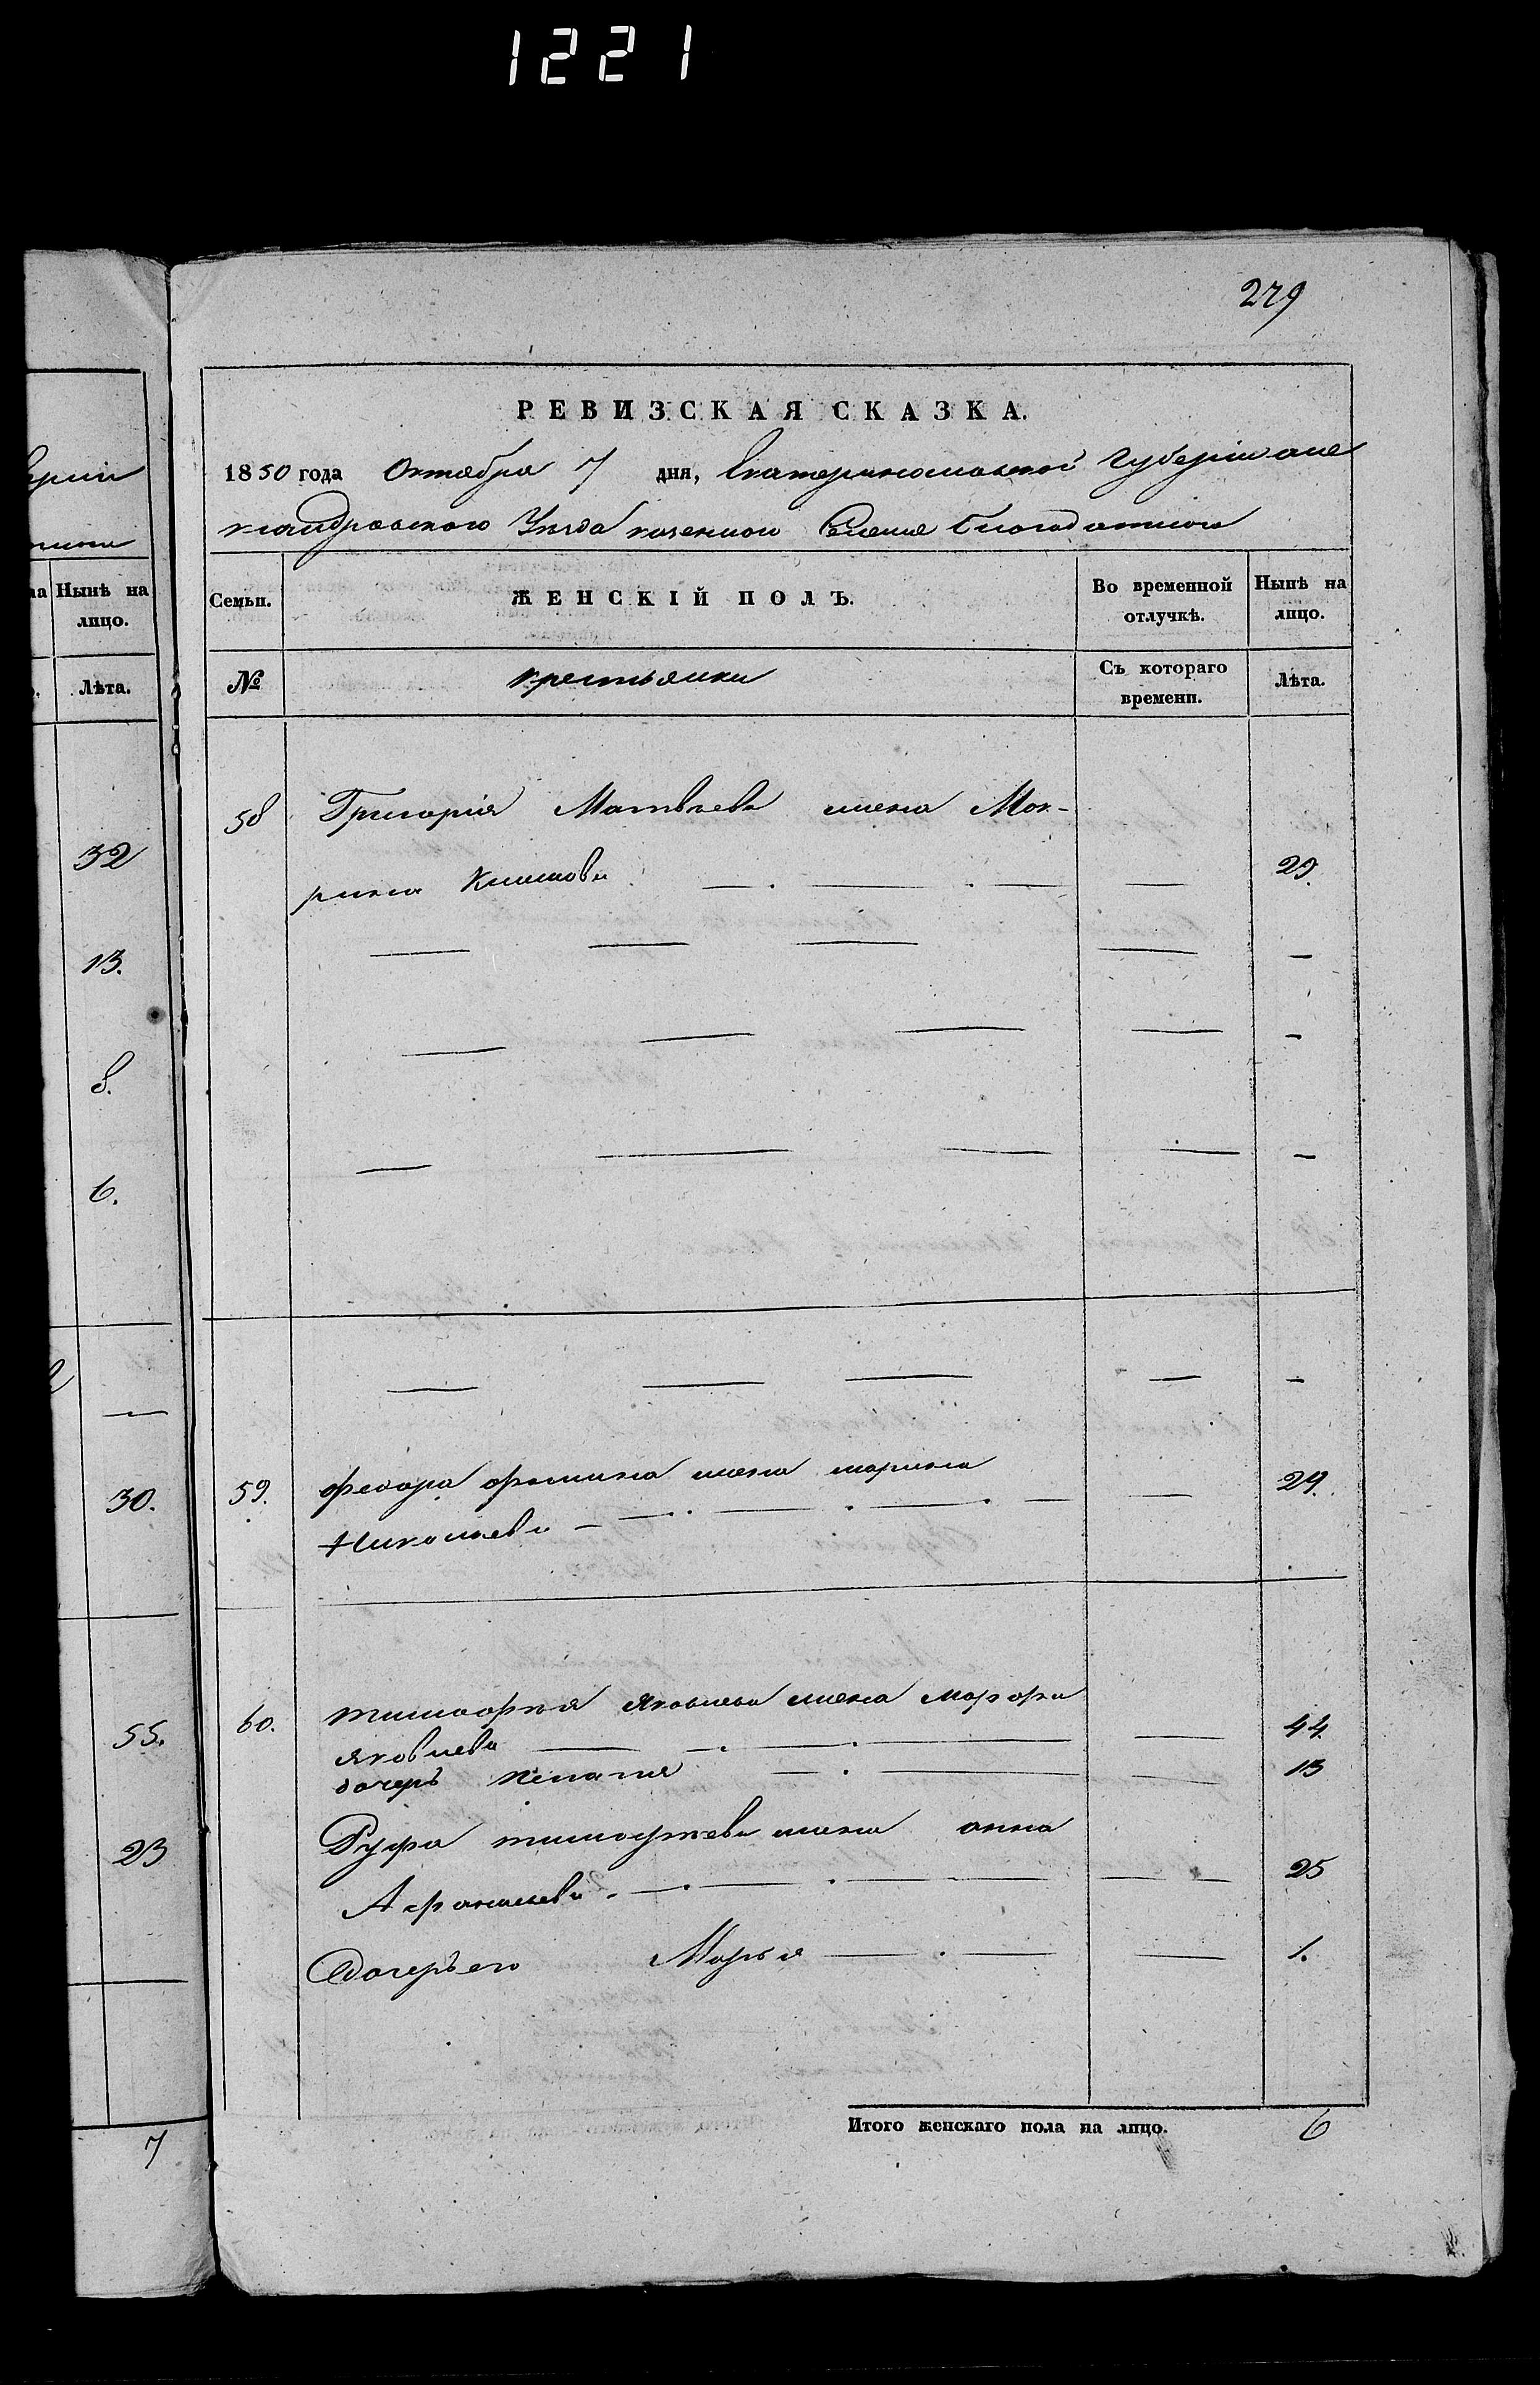 1221
279
РЕВИЗСКАЯ СКАЗКА.
1850 года Октября 7 дня, Екатеринославской Губерніи Алек
сандровского Уезда казенного Селения Благодатного
Семьи. ЖЕНСКІЙ ПОЛЪ. Во временной отлучкѣ. Нынѣ на лицо.
№ крестьянки Съ котораго времени. Лѣта.
58 Григорія Матвѣева жена Мок-
рина Климова 29.
59. Федора Фомина жена марина 29.
Николаева
60. тимофея Яковлева жена марфа
Яковлева 44.
дочерь Пелагия 13
Руфа тимофеева жена анна
Афанасьева 25
дочерь его Марья 1.
Итого женскаго пола на лицо. 6
ерніи
на Нынѣ на лицо.
Лѣта.
32
13.
8.
6.
30.
55.
23
7